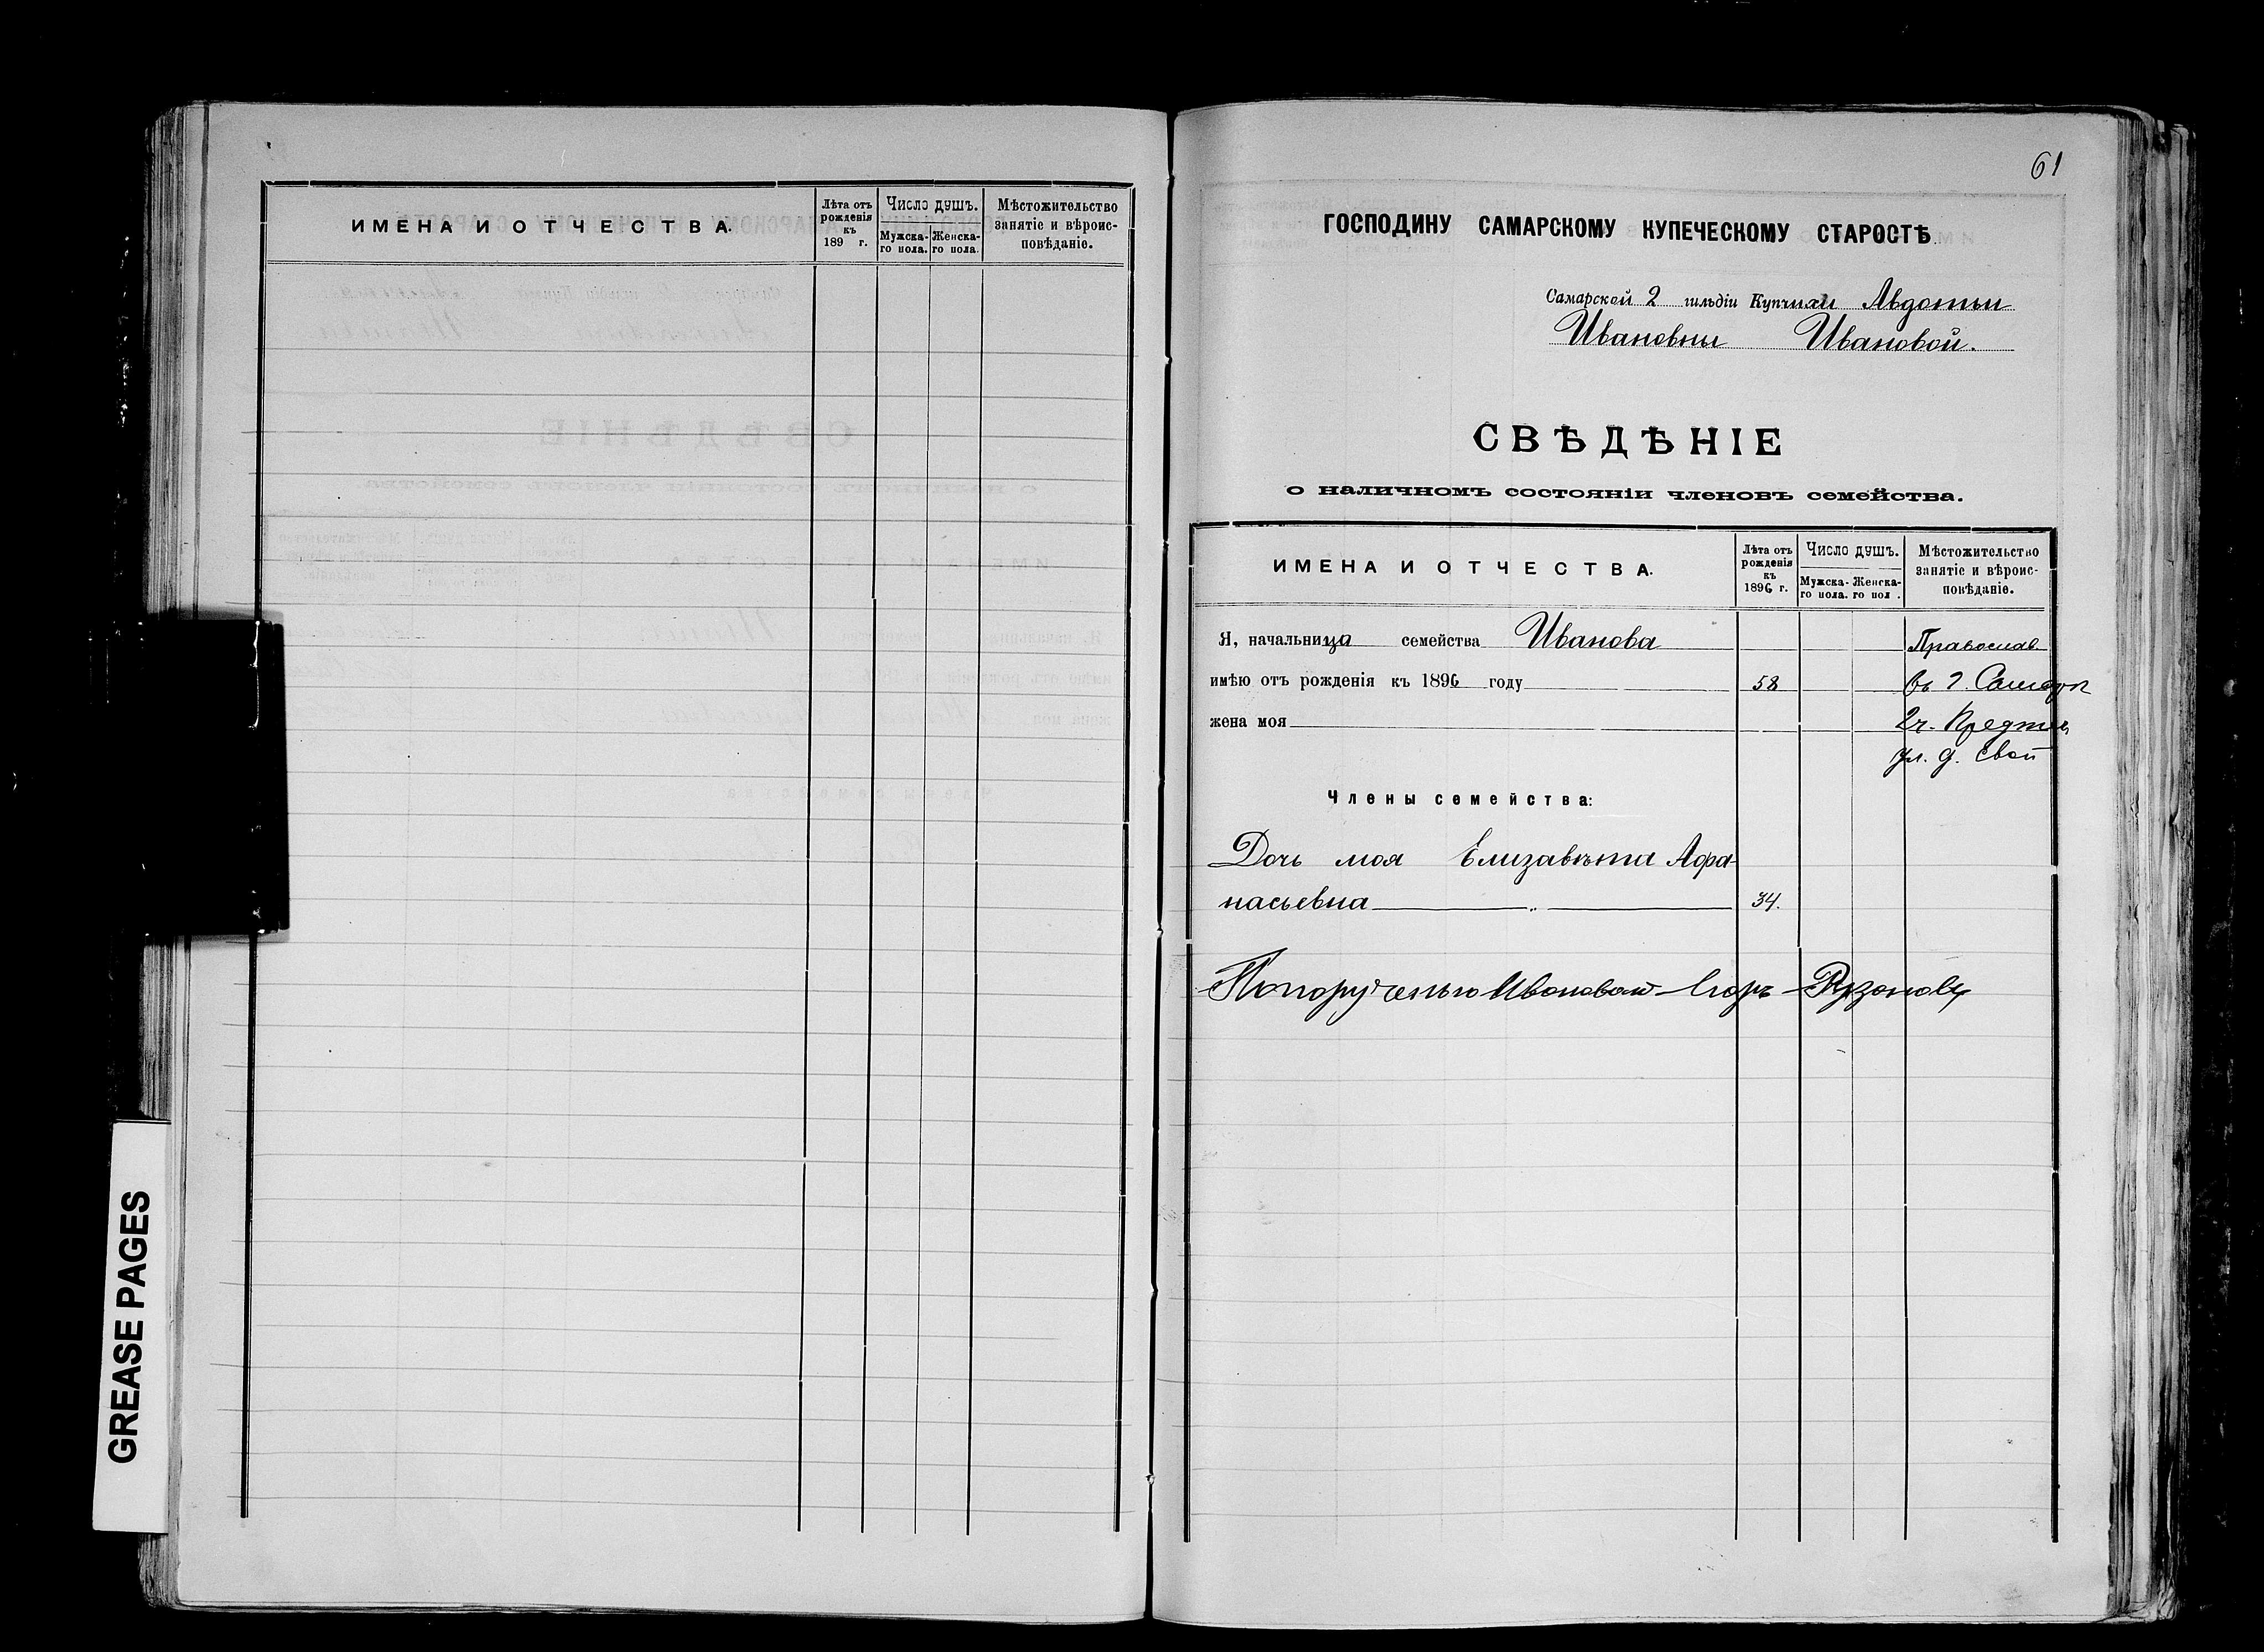 ИМЕНА И ОТЧЕСТВА.
Лѣта отъ рожденія къ 189 г.
Число душъ.
Мужска-го пола.
Женска-го пола.
Мѣстожительство занятіе и вѣроис-повѣданіе.
GREASE PAGES
61
ГОСПОДИНУ САМАРСКОМУ КУПЕЧЕСКОМУ СТАРОСТѢ
Самарской 2 гильдіи Купчихи Авдотьи
Ивановны Ивановой.
СВѢДѢНІЕ
о наличномъ состояніи членовъ семейства.
ИМЕНА И ОТЧЕСТВА.
Лѣта отъ рожденія къ 1896 г.
Число душъ.
Мужска-го пола.
Женска-го пол .
Мѣстожительство занятіе и вѣроис-повѣданіе.
Я, начальница семейства Иванова Православ.
имѣю отъ рожденія къ 1896 году 58 въ г. Самарѣ
жена моя 2ч.
ул. д. свой
Члены семейства:
Дочь моя Елизавѣта Афа-
насьевна 34.
По порученью Ивановой Егоръ